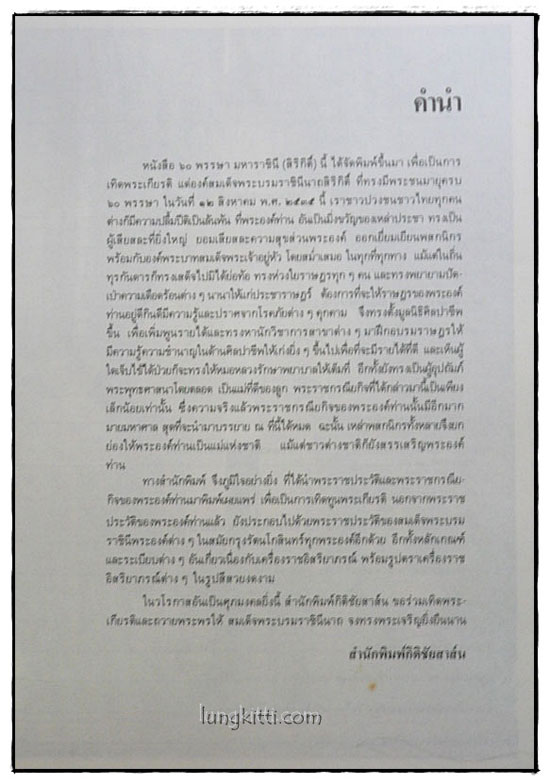 คำนำ
หนังสือ ๖๐ พรรษา มหาราชินี (สิริกิติ์) นี้ ได้จัดพิมพ์ขึ้นมา เพื่อเป็นการ
เทิดพระเกียรติ แด่องค์สมเด็จพระบรมราชินีนาถสิริกิติ์ ที่ทรงมีพระชนมายุครบ
๖๐ พรรษา ในวันที่ ๑๒ สิงหาคม พ.ศ. ๒๕๓๕ นี้ เราชาวปวงชนชาวไทยทุกคน
ต่างก็มีความปลื้มปีติเป็นล้นพ้น ที่พระองค์ท่าน อันเป็นมิ่งขวัญของเหล่าประชา ทรงเป็น
ผู้เสียสละที่ยิ่งใหญ่ ยอมเสียสละความสุขส่วนพระองค์ ออกเยี่ยมเยียนพสกนิกร
พร้อมกับองค์พระบาทสมเด็จพระเจ้าอยู่หัว โดยสม่ำเสมอ ในทุกที่ทุกทาง แม้แต่ในถิ่น
ทุรกันดารก็ทรงเสด็จไปมิได้ย่อท้อ ทรงห่วงใยราษฎรทุก ๆ คน และทรงพยายามปัด-
เป่าความเดือดร้อนต่าง ๆ นานาให้แก่ประชาราษฎร์ ต้องการที่จะให้ราษฎรของพระองค์
ท่านอยู่ดีกินดีมีความรู้และปราศจากโรคภัยต่าง ๆ คุกคาม จึงทรงตั้งมูลนิธิศิลปาชีพ
ขึ้น เพื่อเพิ่มพูนรายได้และทรงหานักวิชาการสาขาต่าง ๆ มาฝึกอบรมราษฎรให้
มีความรู้ความชำนาญในด้านศิลปาชีพให้เก่งยิ่ง ๆ ขึ้นไปเพื่อที่จะมีรายได้ที่ดี และเห็นผู้
ใดเจ็บไข้ได้ป่วยก็จะทรงให้หมอหลวงรักษาพยาบาลให้เต็มที่ อีกทั้งยังทรงเป็นผู้อุปถัมภ์
พระพุทธศาสนาโดยตลอด เป็นแม่ที่ดีของลูก พระราชกรณียกิจที่ได้กล่าวมานี้เป็นเพียง
เล็กน้อยเท่านั้น ซึ่งความจริงแล้วพระราชกรณียกิจของพระองค์ท่านนั้นมีอีกมาก
มายมหาศาล สุดที่จะนำมาบรรยาย ณ ที่นี้ได้หมด ฉะนั้น เหล่าพสกนิกรทั้งหลายจึงยก
ย่องให้พระองค์ท่านเป็นแม่แห่งชาติ แม้แต่ชาวต่างชาติก็ยังสรรเสริญพระองค์
ท่าน
ทางสำนักพิมพ์ จึงภูมิใจอย่างยิ่ง ที่ได้นำพระราชประวัติและพระราชกรณีย-
กิจของพระองค์ท่านมาพิมพ์เผยแพร่ เพื่อเป็นการเทิดทูนพระเกียรติ นอกจากพระราช
ประวัติของพระองค์ท่านแล้ว ยังประกอบไปด้วยพระราชประวัติของสมเด็จพระบรม
ราชินีพระองค์ต่าง ๆ ในสมัยกรุงรัตนโกสินทร์ทุกพระองค์อีกด้วย อีกทั้งหลักเกณฑ์
และระเบียบต่าง ๆ อันเกี่ยวเนื่องกับเครื่องราชอิสริยาภรณ์ พร้อมรูปตราเครื่องราช
อิสริยาภรณ์ต่าง ๆ ในรูปสี่สีสวยงดงาม
ในวโรกาสอันเป็นศุภมงคลยิ่งนี้ สำนักพิมพ์กิติชัยสาส์น ขอร่วมเทิดพระ-
เกียรติและถวายพระพรให้ สมเด็จพระบรมราชินีนาถ จงทรงพระเจริญยิ่งยืนนาน
สำนักพิมพ์กิติชัยสาส์น
lungkitti.com